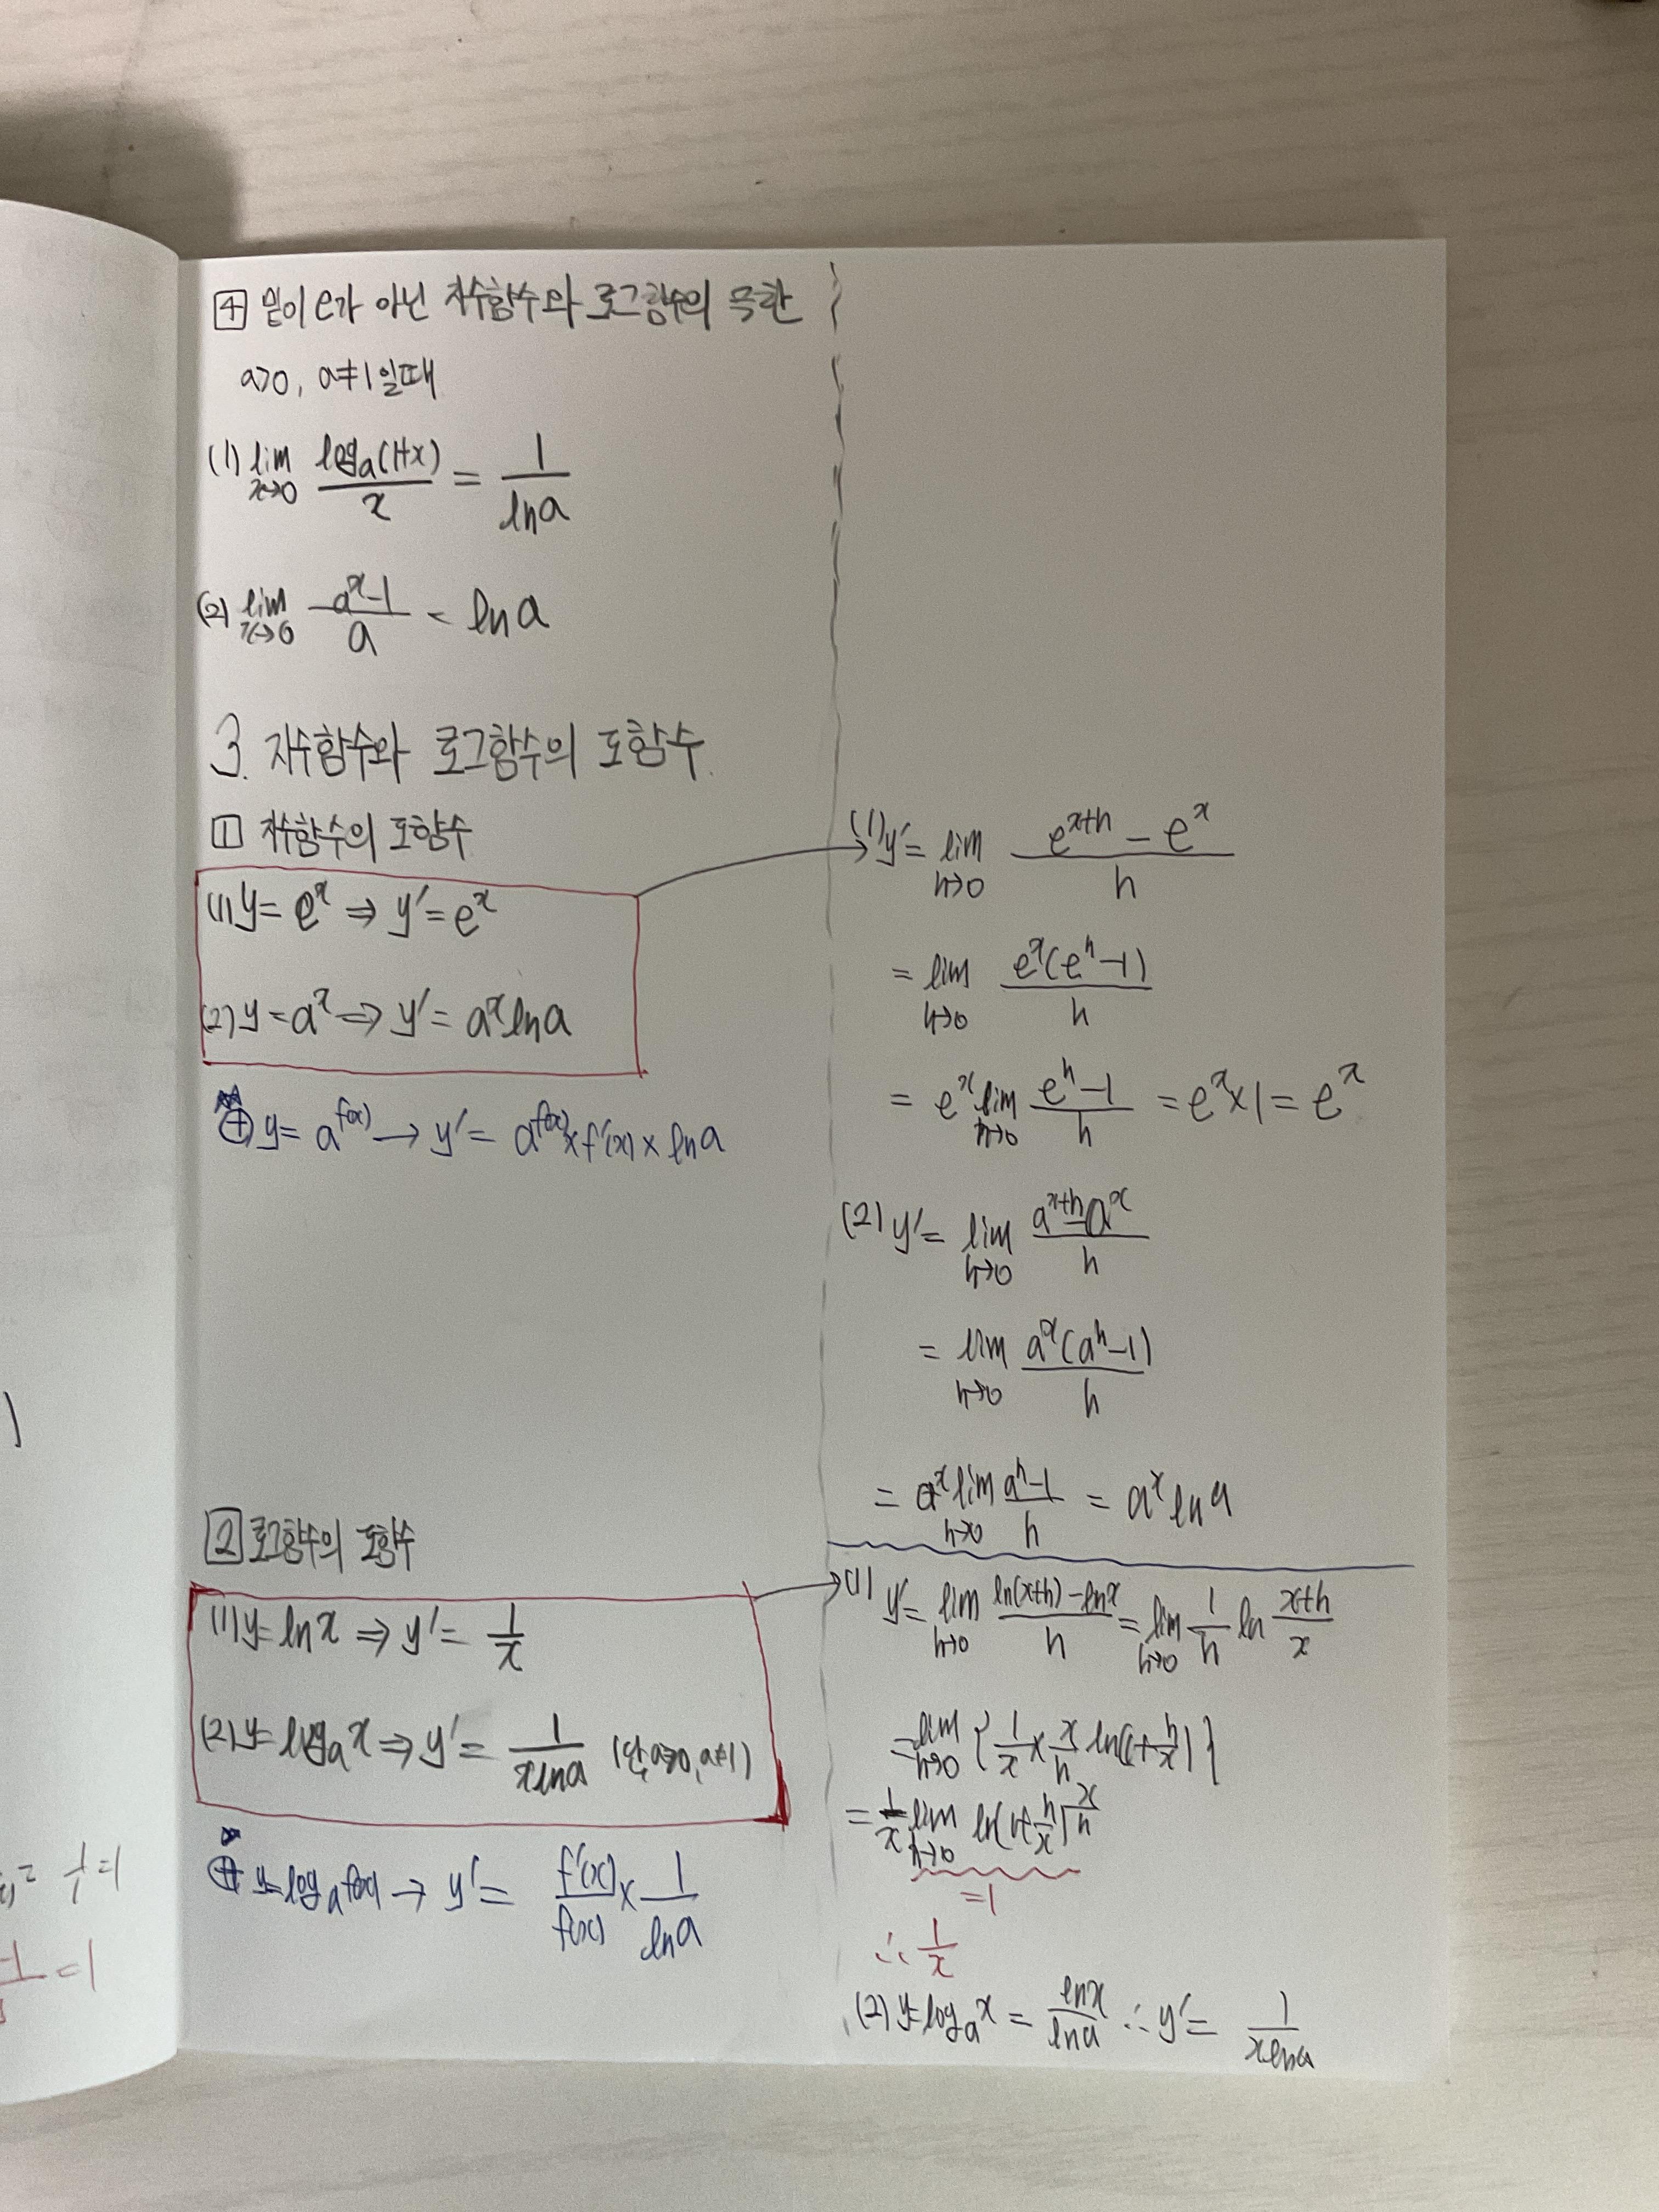 4 밑이 e가 아닌 지수함수와 로그함수의 극한
a>0, a≠1일때
(1) lim x→0 logₐ(1+x)/x = 1/ln a
(2) lim x→0 (aˣ-1)/a = ln a
3. 지수함수와 로그함수의 도함수.
1 지수함수의 도함수
(1) y = eˣ ⇒ y′ = eˣ
(2) y = aˣ ⇒ y′ = aˣ ln a
⊕ y = a^f(x) → y′ = a^f(x) × f′(x) × ln a
2 로그함수의 도함수
(1) y = ln x ⇒ y′ = 1/x
(2) y = logₐx ⇒ y′ = 1/(x ln a) (단, a>0, a≠1)
⊕ y = logₐf(x) → y′ = f′(x)/f(x) × 1/ln a
(1) y′ = lim h→0 (e^(x+h) - eˣ)/h
= lim h→0 eˣ(eʰ-1)/h
= eˣ lim h→0 (eʰ-1)/h = eˣ×1 = eˣ
(2) y′ = lim h→0 (a^(x+h) - aˣ)/h
= lim h→0 aˣ(aʰ-1)/h
= aˣ lim h→0 (aʰ-1)/h = aˣ ln a
(1) y′ = lim h→0 (ln(x+h) - ln x)/h = lim h→0 1/h ln (x+h)/x
= lim h→0 {1/x × x/h ln(1+h/x)}
= 1/x lim h→0 ln(1+h/x)^(x/h)
=1
∴ 1/x
(2) y = logₐx = ln x/ln a ∴ y′ = 1/(x ln a)
= 1/1 = 1
= 1